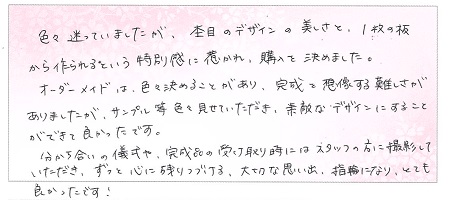 色々迷っていましたが、杢目のデザインの美しさと、1枚の板
から作られるという特別感に惹かれ、購入を決めました。
オーダーメイドは、色々決めることがあり、完成を想像する難しさが
ありましたが、サンプル等色々見せていただき、素敵なデザインにすること
ができて良かったです。
分かち合いの儀式や、完成品の受け取り時にはスタッフの方に撮影して
いただき、ずっと心に残りつづける、大切な思い出、指輪になり、とても
良かったです!